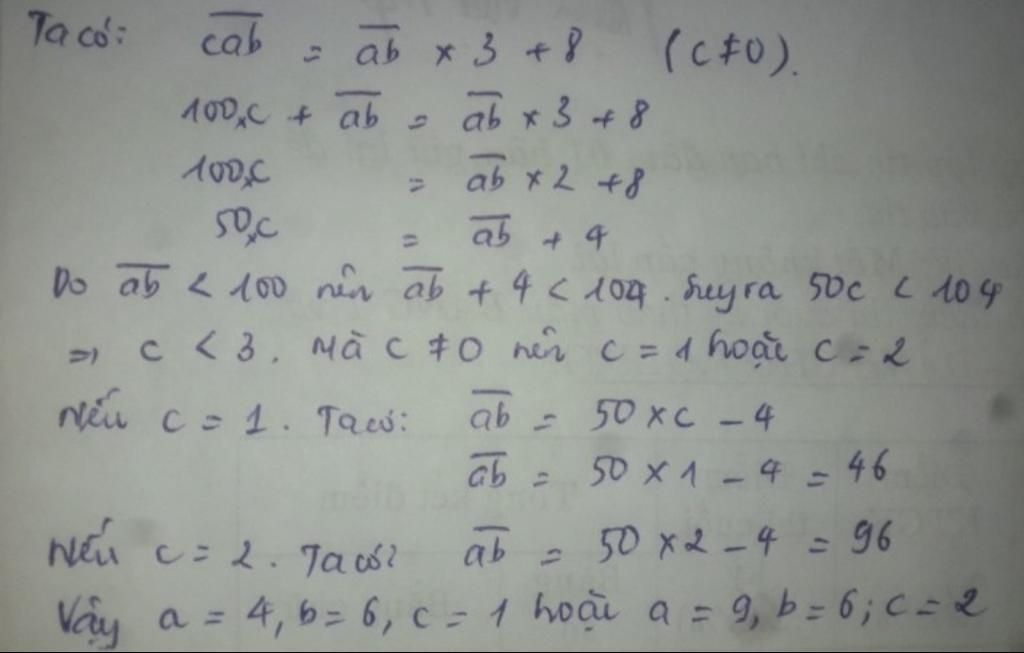 Ta có: \overline{cab} = \overline{ab} × 3 + 8 (c ≠ 0).
100×c + \overline{ab} = \overline{ab} × 3 + 8
100×c = \overline{ab} × 2 + 8
50×c = \overline{ab} + 4
Do \overline{ab} < 100 nên \overline{ab} + 4 < 104. Suy ra 50c < 104
=> c < 3. Mà c ≠ 0 nên c = 1 hoặc c = 2
Nếu c = 1. Ta có: \overline{ab} = 50 × c - 4
\overline{ab} = 50 × 1 - 4 = 46
Nếu c = 2. Ta có: \overline{ab} = 50 × 2 - 4 = 96
Vậy a = 4, b = 6, c = 1 hoặc a = 9, b = 6; c = 2